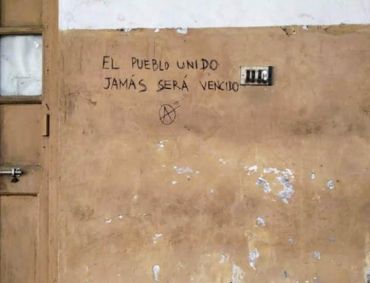 EL PUEBLO UNIDO
JAMÁS SERÁ VENCIDO